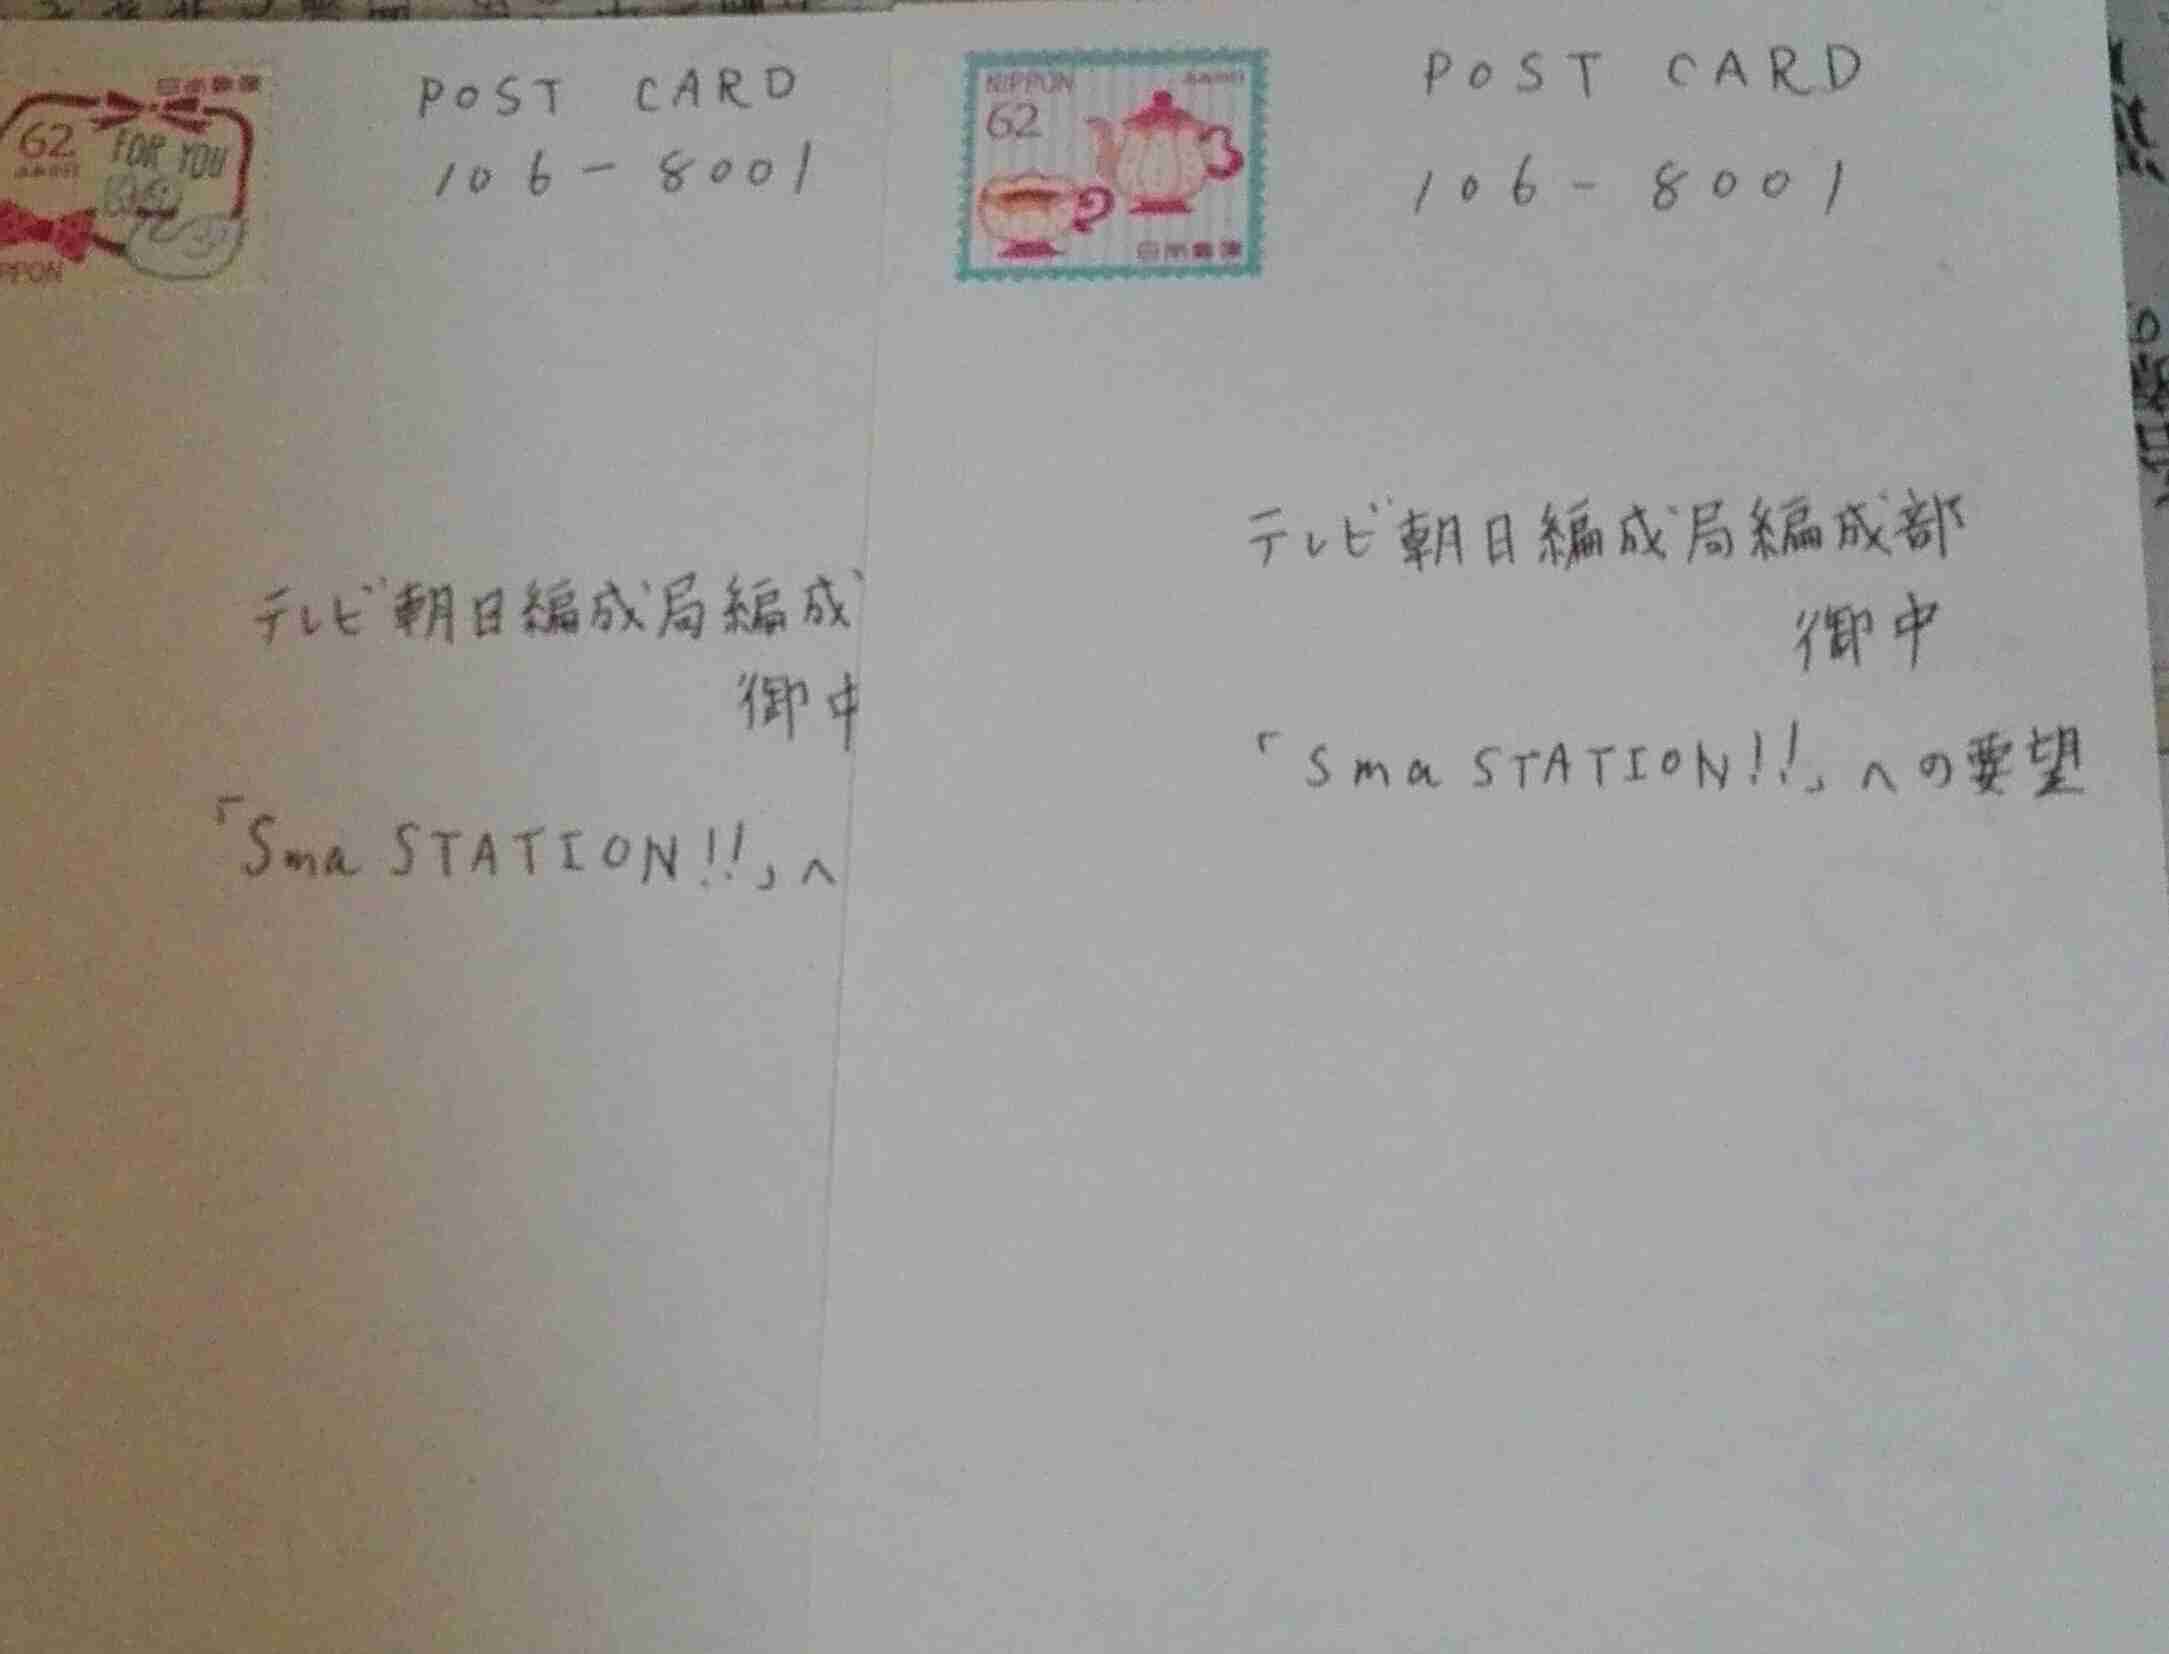 62
FOR YOU
POST CARD
106-8001
テレビ朝日編成局編成
御中
「SmaSTATION!!」へ
NIPPON
62
日本郵便
POST CARD
106-8001
テレビ朝日編成局編成部
御中
「SmaSTATION!!」への要望